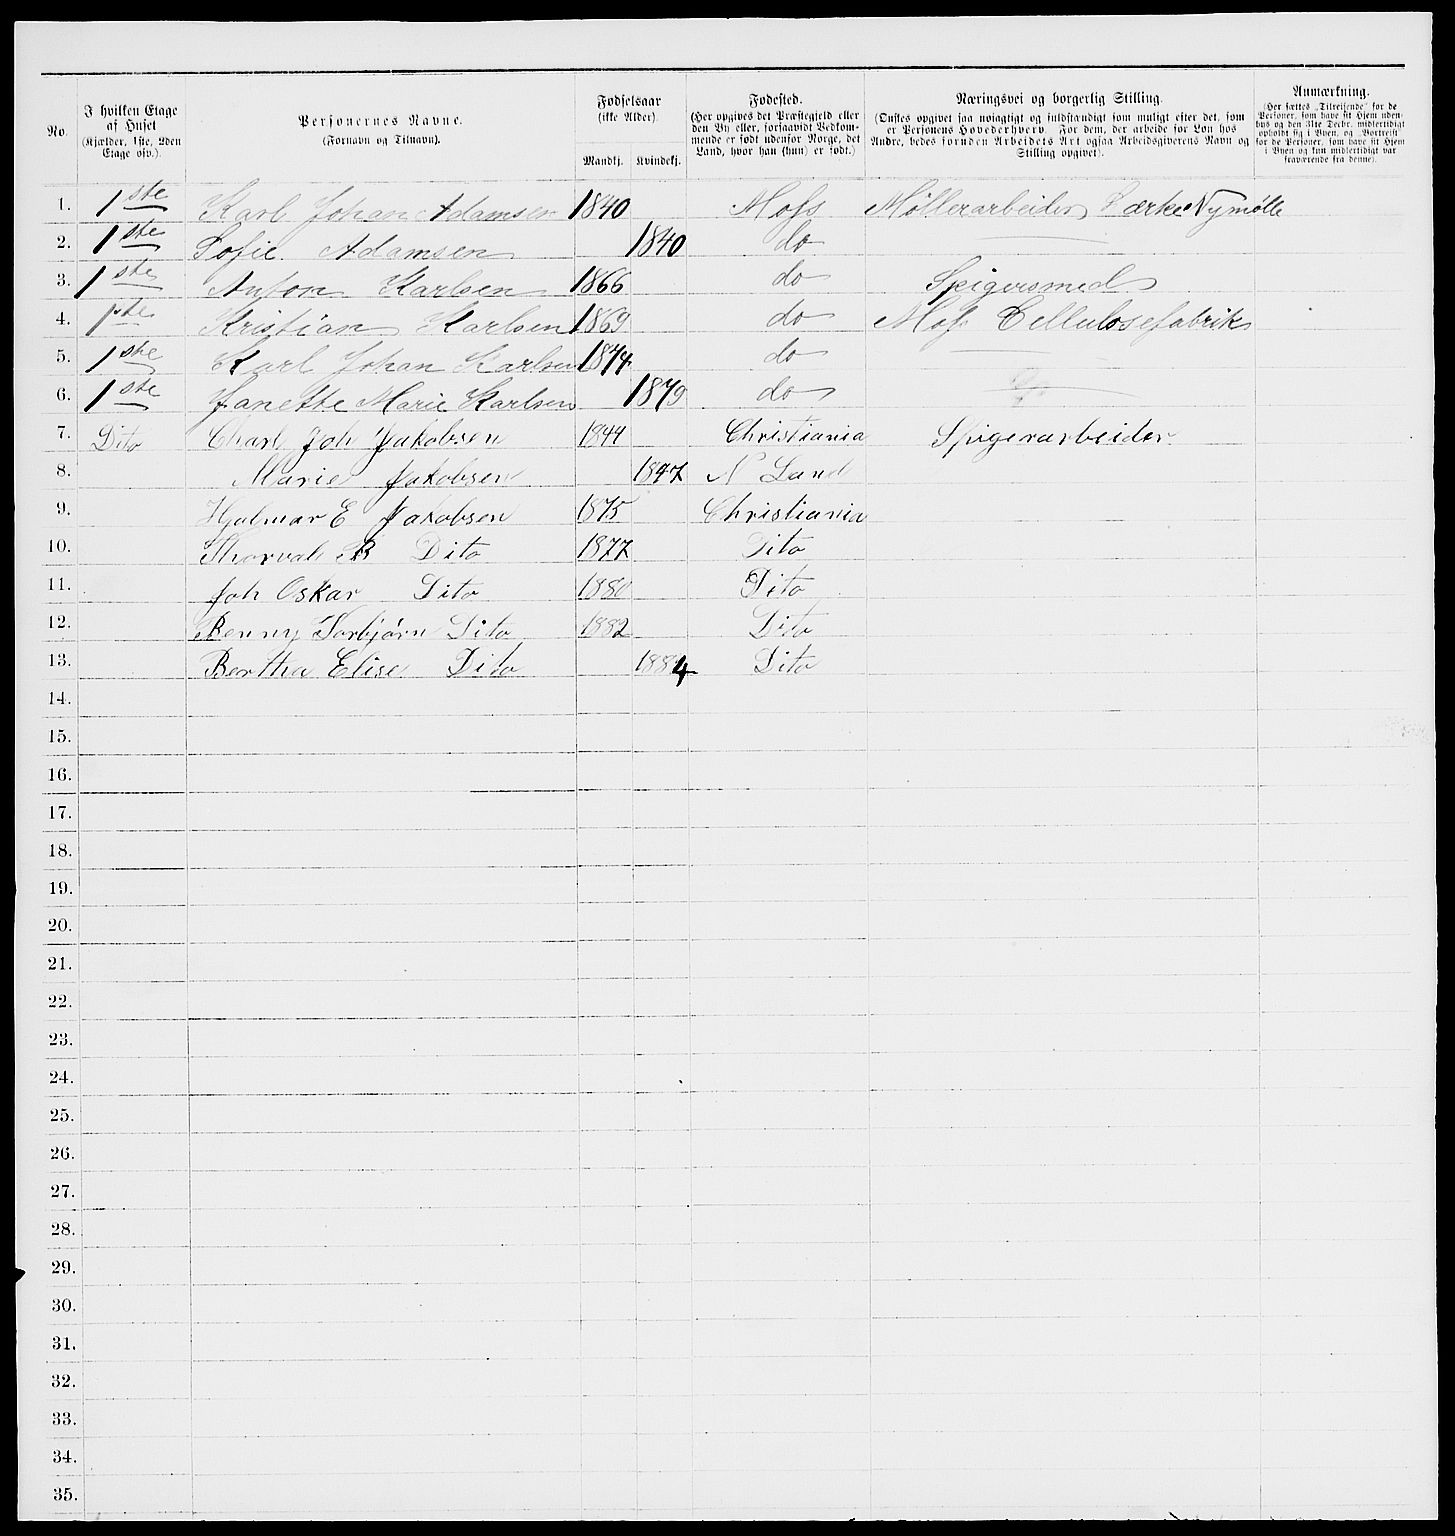 No.
I hvilken Etage af Huset
(Kjælder, 1ste, 2den Etage osv.).
Personernes Navne.
(Fornavn og Tilnavn).
Fødselsaar
(ikke Alder).
Mandkj. Kvindekj.
Fødested.
(Her opgives det Præstegjeld eller
den By eller, forsaavidt Vedkom-
mende er født udenfor Norge, det
Land, hvor han (hun) er født.)
Næringsvei og borgerlig Stilling.
(Ønskes opgivet saa nøiagtigt og fuldstændigt som muligt efter det, som
er Personens Hovederhverv. For dem, der arbeide for Løn hos
Andre, bedes foruden Arbeidets Art ogsaa Arbeidsgiverens Navn og
Stilling opgivet).
Anmærkning.
(Her sættes „Tilreisende“ for de
Personer, som have sit Hjem uden-
bys og den 31te Decbr. midlertidigt
opholdt sig i Byen, og „Bortreist“
for de Personer, som have sit Hjem
i Byen og kun midlertidigt var
fraværende fra denne).
1. 1ste Karl Johan Adamsen 1840 Mofs Møllerarbeider Nymølle
2. 1ste Sofie Adamsen 1840 do
3. 1ste Anton Karlsen 1866 do Spigersmed
4. 1ste Kristian Karlsen 1869 do Mofs Cellulosefabrik
5. 1ste Karl Johan Karlsen 1874 do
6. 1ste Janette Marie Karlsen 1879 do
7. Dito Charl Joh Jakobsen 1844 Christiania Spigerarbeider
8. Marie Jakobsen 1847 N Land
9. Hjalmar E Jakobsen 1875 Christiania
10. Thorval B Dito 1877 Dito
11. Joh Oskar Dito 1880 Dito
12. Benny Torbjørn Dito 1882 Dito
13. Bertha Elise Dito 1884 Dito
14.
15.
16.
17.
18.
19.
20.
21.
22.
23.
24.
25.
26.
27.
28.
29.
30.
31.
32.
33.
34.
35.